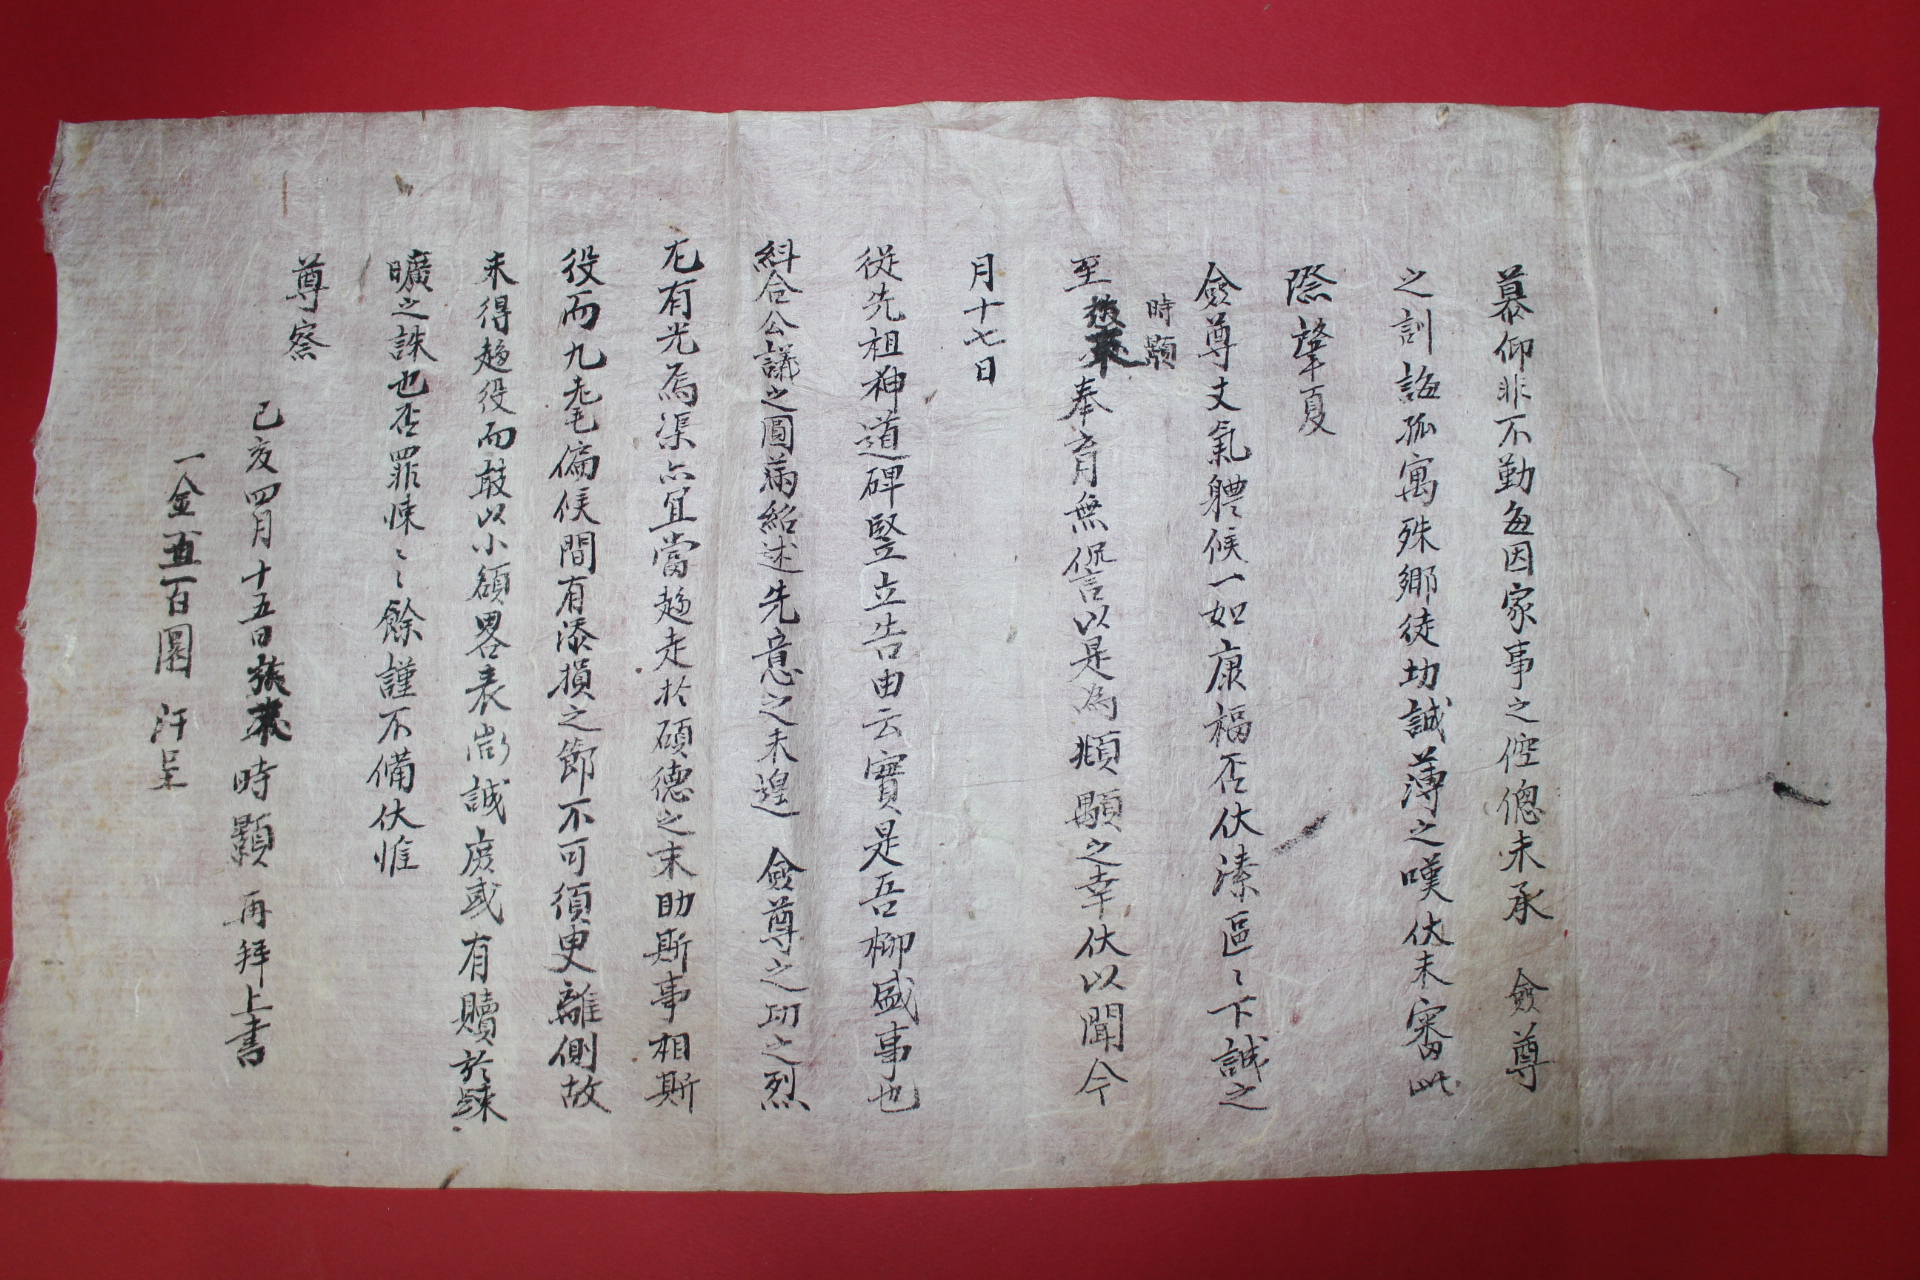 慕仰非不勤每因家事之倥傯未承 僉尊
之訓誨孤寓殊鄉徒切誠薄之嘆伏未審此
際肇夏
僉尊丈氣體候一如康福否伏溸區〻下誠之
時顯
至 奉育無諐以是為順願之幸伏以聞今
月十七日
從先祖神道碑竪立告由云實是吾柳盛事也
糾合公議之圓滿紹述先意之未遑 僉尊之功之烈
尤有光焉渠亦宜當趍走於碩德之末助斯事相斯
役而九耄偏候間有添損之節不可須臾離側故
未得趍役而敢以小額畧表微誠庶或有贖於疎
曠之誅也否罪悚〻餘謹不備伏惟
尊察
己亥四月十五日 時顯 再拜上書
一金五百圜 汗呈